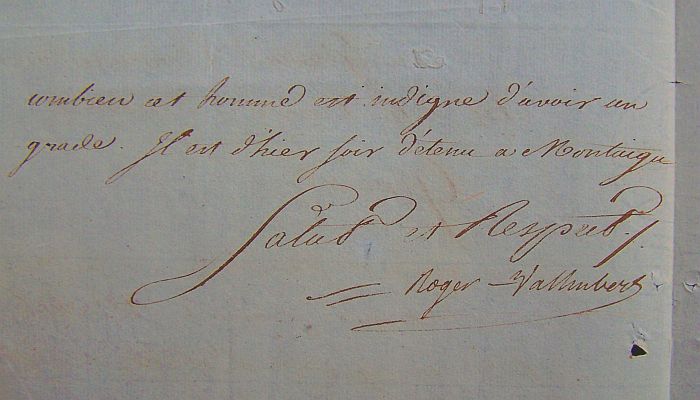 combien cet homme est indigne d'avoir un
grade. Il est d'hier soir détenu a Montaigu
Salut et Respect /.
Roger-Valhubert